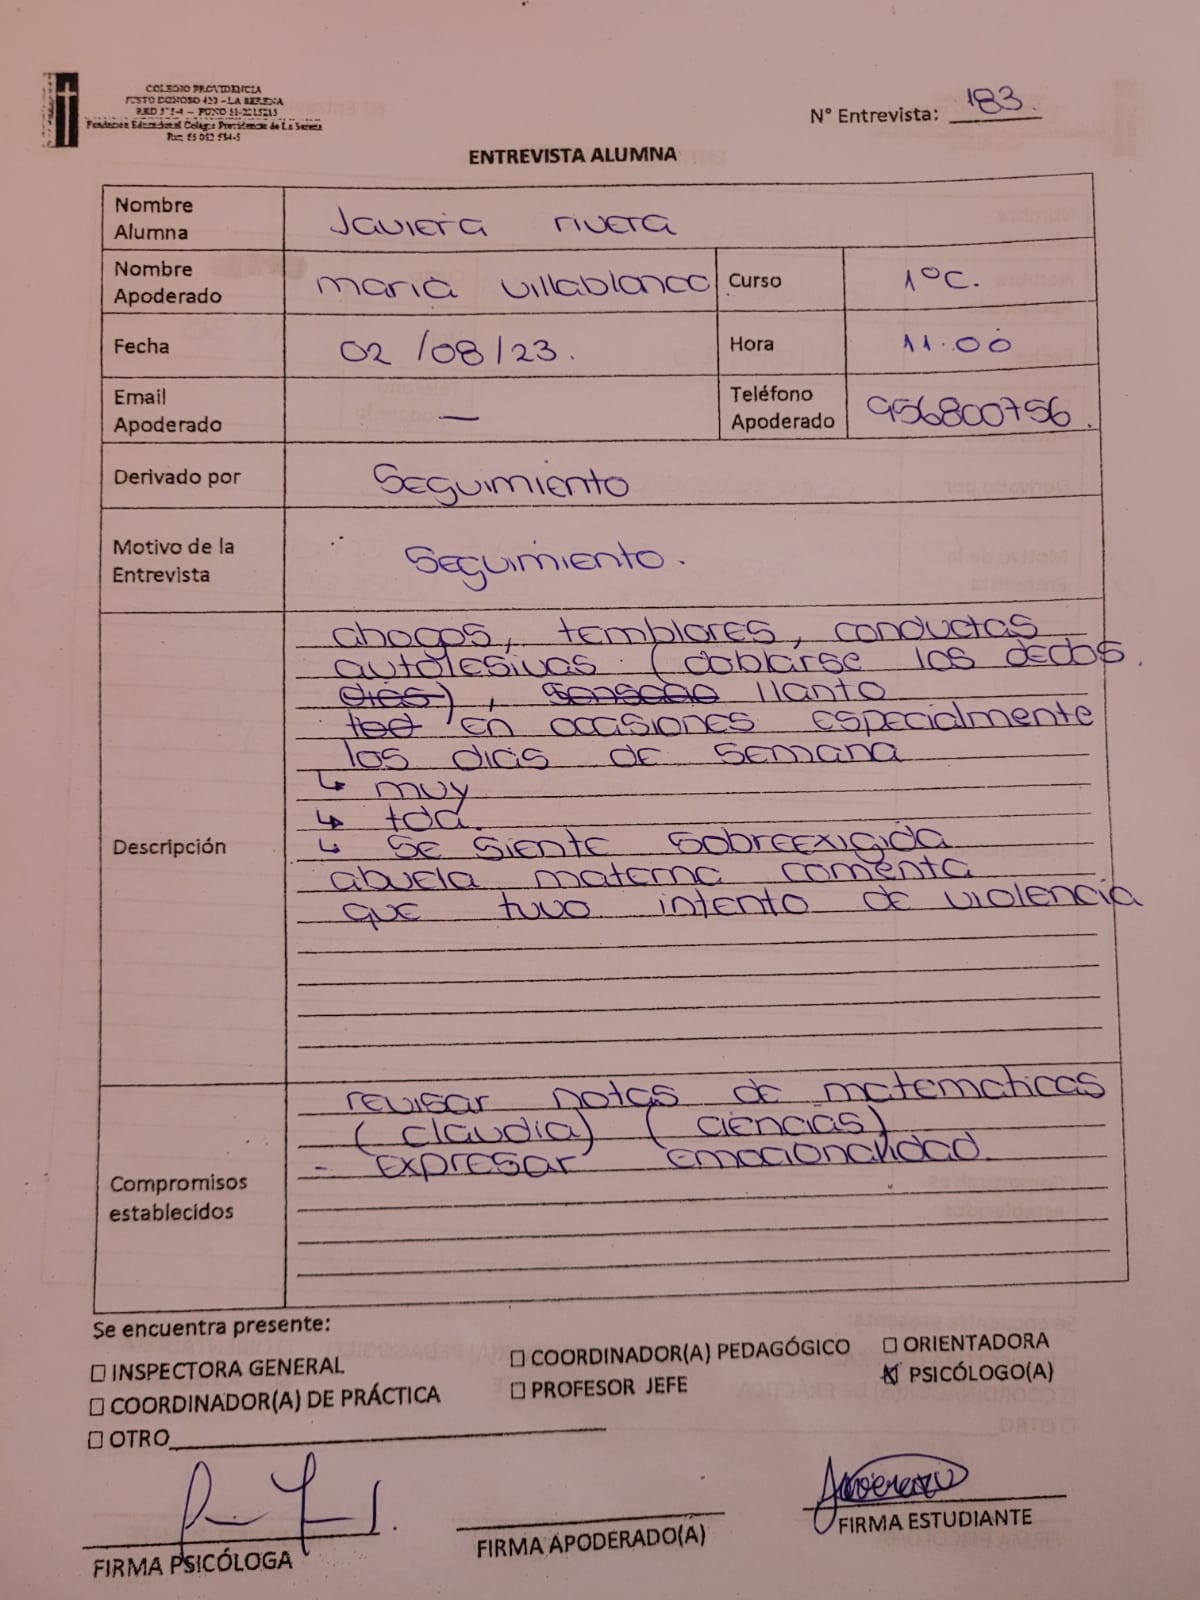 COLEGIO PROVIDENCIA
JUSTO DONOSO 420 - LA SERENA
Fundación Educacional Colegio Providencia de La Serena
N° Entrevista: 183.
ENTREVISTA ALUMNA
Nombre Alumna Javiera rivera
Nombre Apoderado maria villablanca Curso 1°C.
Fecha 02/08/23. Hora 11.00
Email Apoderado — Teléfono Apoderado 956800756.
Derivado por Seguimiento
Motivo de la Entrevista Seguimiento.
Descripción
ahogos, temblores, conductas
autolesivas (doblarse los dedos.
), llanto
en occisiones especialmente
los dias de semana
↳ muy
↳ tda.
↳ se siente sobreexigida
abuela materna comenta
que tuvo intento de violencia
Compromisos establecidos
revisar notas de matematicas
(claudia) (ciencias)
- expresar emocionalidad.
Se encuentra presente:
☐ INSPECTORA GENERAL ☐ COORDINADOR(A) PEDAGÓGICO ☐ ORIENTADORA
☐ COORDINADOR(A) DE PRÁCTICA ☐ PROFESOR JEFE ☒ PSICÓLOGO(A)
☐ OTRO
FIRMA PSICÓLOGA FIRMA APODERADO(A) FIRMA ESTUDIANTE